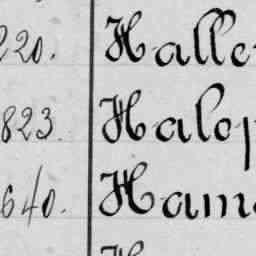 220. Halle
823. Halep
640. Ham